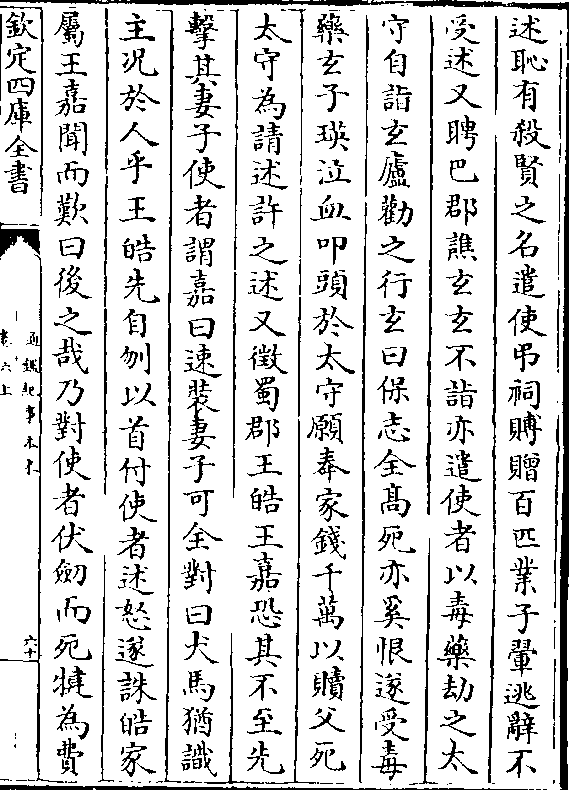 述恥有殺賢之名遣使弔祠賻贈百匹業子翬逃辭不
受述又聘巴郡譙玄玄不詣亦遣使者以毒藥劫之太
守自詣玄廬勸之行玄曰保志全髙死亦奚恨遂受毒
藥玄子瑛泣血叩頭於太守願奉家錢千萬以贖父死
太守為請述許之述又徵蜀郡王皓王嘉恐其不至先
擊其妻子使者謂嘉曰速裝妻子可全對曰犬馬猶識
主況於人乎王皓先自刎以首付使者述怒遂誅皓家
屬王嘉聞而歎曰後之哉乃對使者伏劒而死犍為費
欽定四庫全書
通鑑紀事本末
卷六上
六十